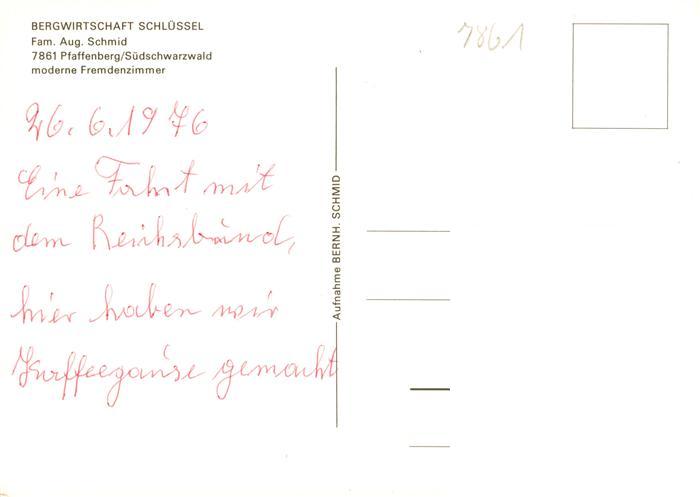 BERGWIRTSCHAFT SCHLÜSSEL
Fam. Aug. Schmid
7861 Pfaffenberg/Südschwarzwald
moderne Fremdenzimmer
7861
26.6.1976
Eine Fahrt mit
dem Reichsbund,
hier haben wir
Kaffeepause gemacht
Aufnahme BERNH. SCHMID